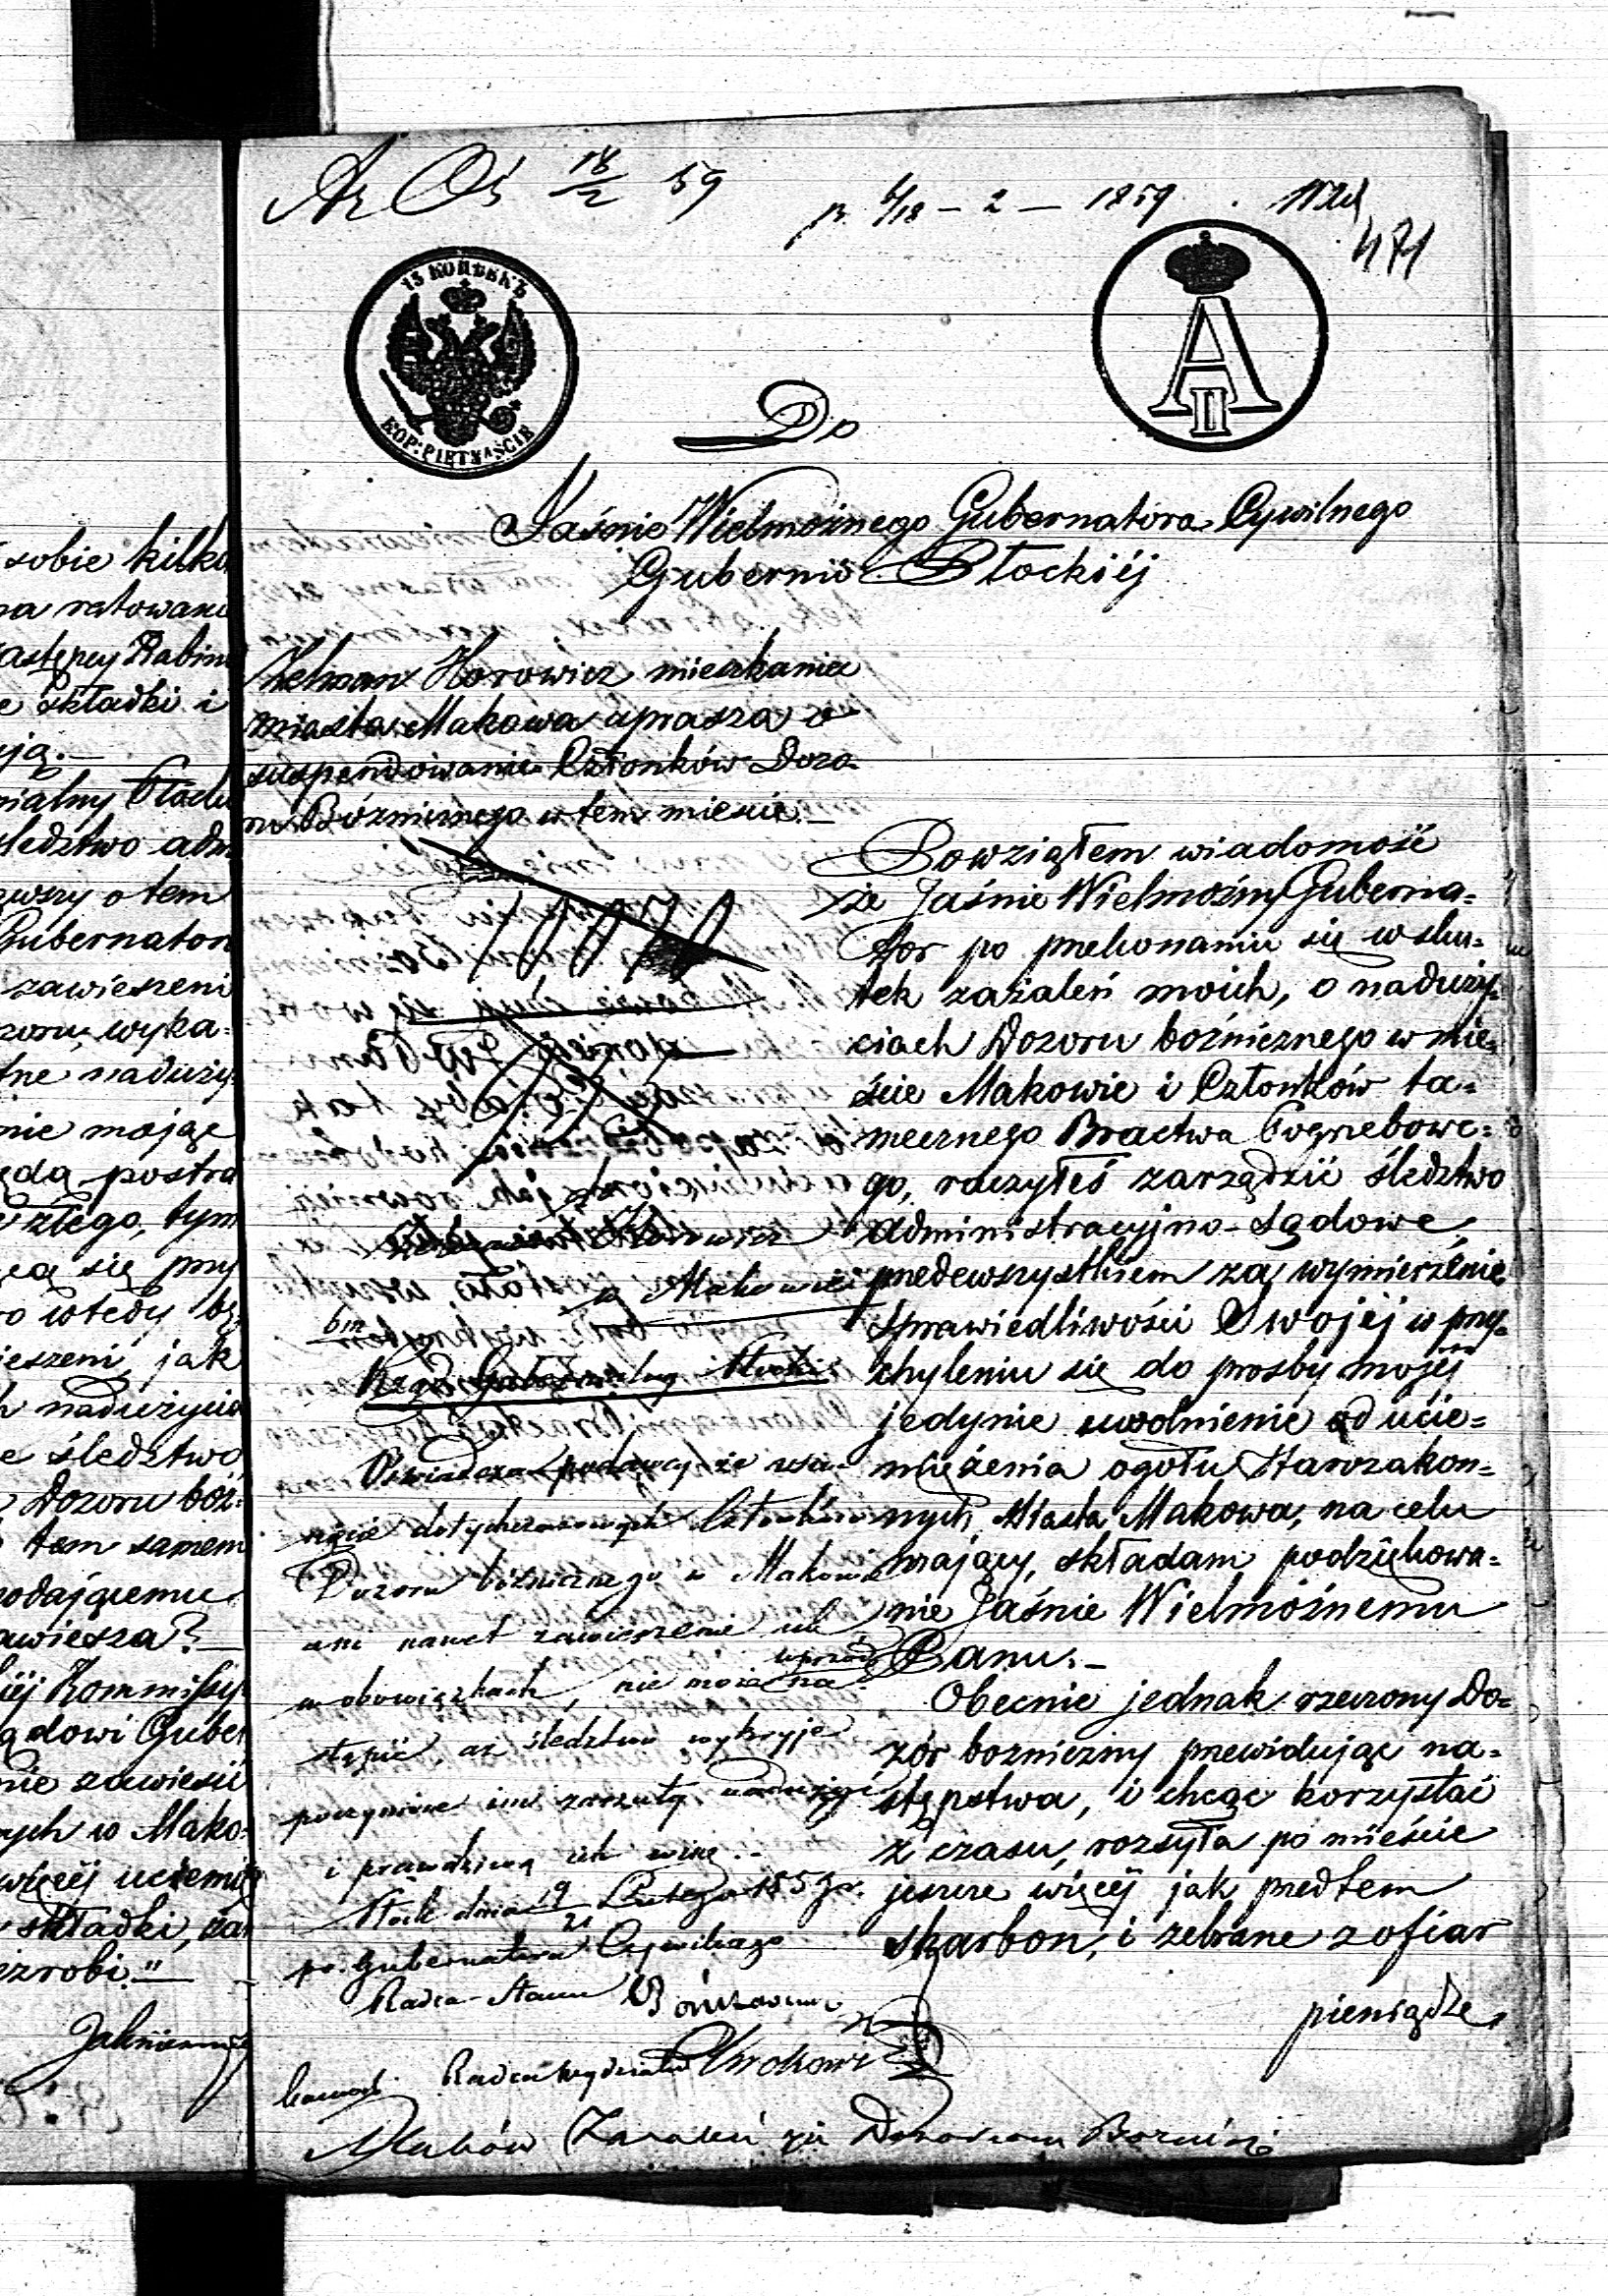 18/2 59
p. 6/18 - 2 - 1859.
471
15 КОПѢЕКЪ
KOP: PIĘTNAŚCIE
A II
Do
Jaśnie Wielmożnego Gubernatora Cywilnego
Gubernii Płockiéj
Zelman Horowicz mieszkaniec
miasta Makowa uprasza o
suspendowanie Członków Dozo-
ru Bóżnicznego w tem mieście.—
Powziąłem wiadomość
że Jaśnie Wielmożny Guberna=
tor po przekonaniu się w sku=
tek zażaleń moich, o naduży=
ciach Dozoru bożnicznego w mie=
ście Makowie i Członków ta=
mecznego Bractwa Pogrzebowe=
go, raczyłeś zarządzić śledztwo
administracyjno-sądowe,
przedewszystkiem za wymierzenie
sprawiedliwości Swojéj w przy=
chyleniu się do prosby mojéj
jedynie uwolnienie od ucie=
miężenia ogołu Starozakon=
nych Miasta Makowa, na celu
mający, składam podziękowa=
nie Jaśnie Wielmożnemu
Panu.—
Obecnie jednak rzeczony Do=
zór bozniczny przewidując na=
stępstwa, i chcąc korzystać
z czasu, rozsyła po mieście
jeszcze więcéj jak przedtem
skarbon, i zebrane z ofiar
pieniądze,
10070
Horowicz
w Makowie
Rząd Gubernialny Płocki
Oświadcza podawcy że usu-
nięcie dotychczasowych Członków
Dozoru bóżnicznego w Makowie
ani nawet zawieszenie ich
w obowiązkach, nie może wprzód na
stąpić, aż śledztwo wykryje
poczynione im zarzuty nadużyć
i prawdziwą ich winę.-
Płock dnia 9/21 Lutego 1859 r.
po. Gubernatora Cywilnego
Radca-Stanu
Radca Wydziału
Maków
sobie kilku
na ratowani
astępcy Rabina
e składki i
ują.—
nialny Płocki
śledztwo adm
wszy o tem
Gubernator
zawieszeni
zoru, wyka=
tne naduży
nie mając
ędą postra
złego, tym
cą się przy
o wtedy by
ieszeni, jak
h nadużycia
e śledztwo
Dozoru boż=
tem samem
podającemu
awiesza?—
iéj Kommissyi
ądowi Guber
nie zawiesić
nych w Mako=
więcéj uciemię
składki, za
zrobi."—